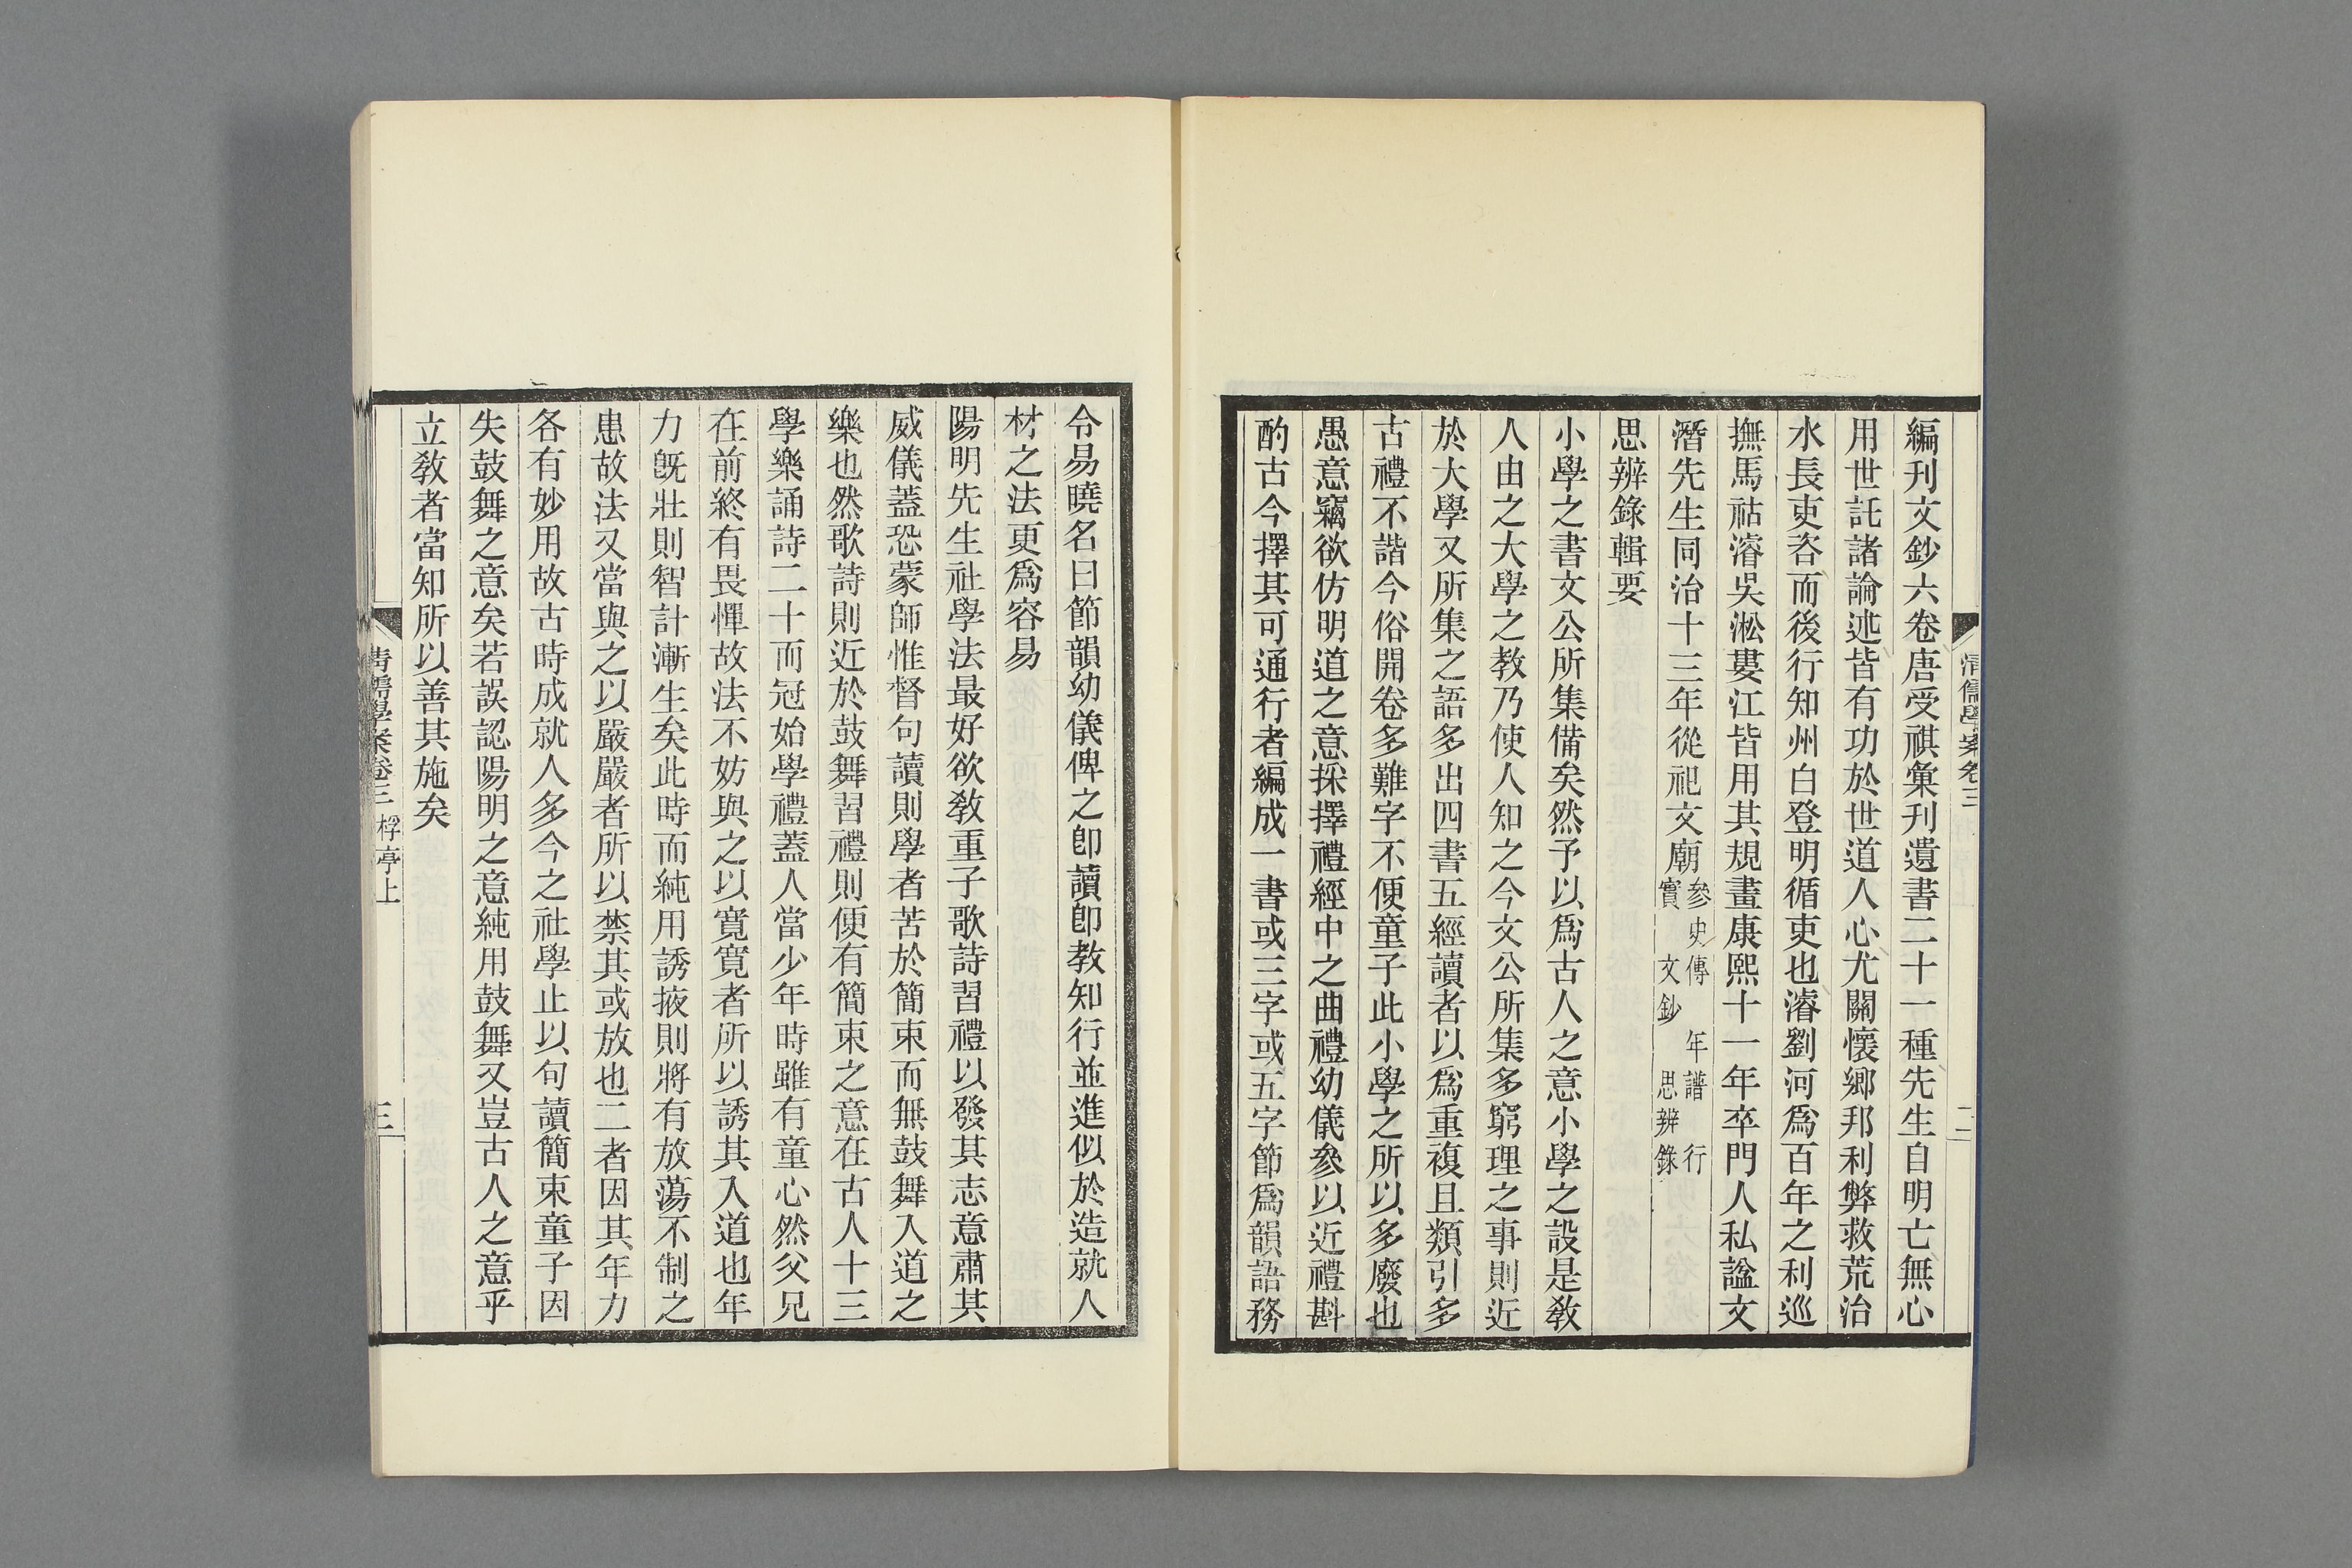 清儒學案卷三
二
編刊文鈔六卷唐受祺彙刊遺書二十一種先生自明亡無心
用世託諸論述皆有功於世道人心尤關懷鄉邦利弊救荒治
水長吏咨而後行知州白登明循吏也濬劉河爲百年之利巡
撫馬祜濬吳淞婁江皆用其規畫康熙十一年卒門人私諡文
潛先生同治十三年從祀文廟參史傳 年譜 行實 文鈔 思辨錄
思辨錄輯要
小學之書文公所集備矣然予以爲古人之意小學之設是敎
人由之大學之敎乃使人知之今文公所集多窮理之事則近
於大學又所集之語多出四書五經讀者以爲重複且類引多
古禮不諧今俗開卷多難字不便童子此小學之所以多廢也
愚意竊欲仿明道之意採擇禮經中之曲禮幼儀參以近禮斟
酌古今擇其可通行者編成一書或三字或五字節爲韻語務
令易曉名曰節韻幼儀俾之卽讀卽敎知行並進似於造就人
材之法更爲容易
陽明先生社學法最好欲敎重子歌詩習禮以發其志意肅其
威儀蓋恐蒙師惟督句讀則學者苦於簡束而無鼓舞入道之
樂也然歌詩則近於鼓舞習禮則便有簡束之意在古人十三
學樂誦詩二十而冠始學禮蓋人當少年時雖有童心然父兄
在前終有畏憚故法不妨與之以寬寬者所以誘其入道也年
力旣壯則智計漸生矣此時而純用誘掖則將有放蕩不制之
患故法又當與之以嚴嚴者所以禁其或放也二者因其年力
各有妙用故古時成就人多今之社學止以句讀簡束童子因
失鼓舞之意矣若誤認陽明之意純用鼓舞又豈古人之意乎
立敎者當知所以善其施矣
清儒學案卷三 桴亭上
三